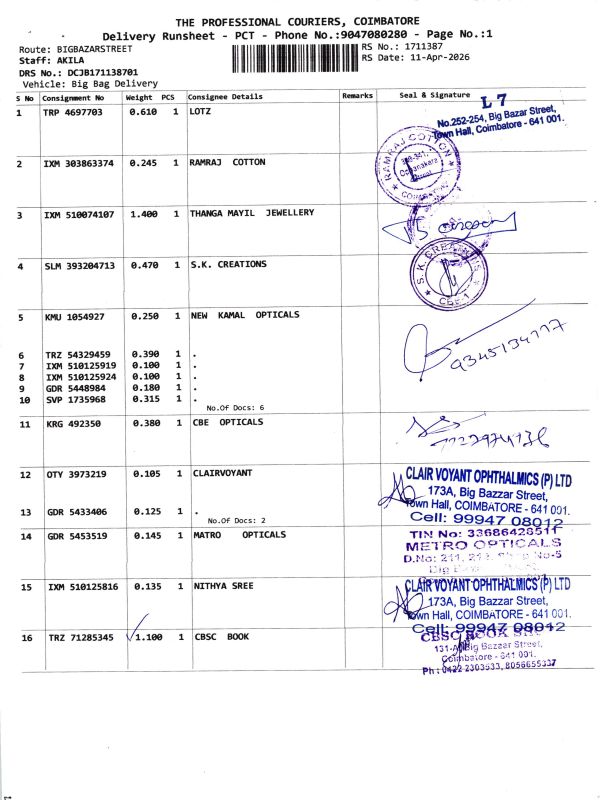 THE PROFESSIONAL COURIERS, COIMBATORE
Delivery Runsheet - PCT - Phone No.:9047080280 - Page No.:1
Route: BIGBAZARSTREET
RS No.: 1711387
Staff: AKILA
RS Date: 11-Apr-2026
DRS No.: DCJB171138701
Vehicle: Big Bag Delivery
S No Consignment No Weight PCS Consignee Details Remarks Seal & Signature
1 TRP 4697703 0.610 1 LOTZ
L 7
No.252-254, Big Bazar Street,
Town Hall, Coimbatore - 641 001.
2 IXM 303863374 0.245 1 RAMRAJ COTTON
RAMRAJ COTTON
3 IXM 510074107 1.400 1 THANGA MAYIL JEWELLERY
4 SLM 393204713 0.470 1 S.K. CREATIONS
S.K. CREATIONS
CBE-1
5 KMU 1054927 0.250 1 NEW KAMAL OPTICALS
6 TRZ 54329459 0.390 1 .
7 IXM 510125919 0.100 1 .
8 IXM 510125924 0.100 1 .
9 GDR 5448984 0.180 1 .
10 SVP 1735968 0.315 1 .
No.Of Docs: 6
11 KRG 492350 0.380 1 CBE OPTICALS
12 OTY 3973219 0.105 1 CLAIRVOYANT
CLAIR VOYANT OPHTHALMICS (P) LTD
173A, Big Bazzar Street,
Town Hall, COIMBATORE - 641 001.
Cell: 99947 08012
13 GDR 5433406 0.125 1 .
No.Of Docs: 2
14 GDR 5453519 0.145 1 MATRO OPTICALS
TIN No: 33686428511
METRO OPTICALS
D.No: 211, 212,
15 IXM 510125816 0.135 1 NITHYA SREE
CLAIR VOYANT OPHTHALMICS (P) LTD
173A, Big Bazzar Street,
Town Hall, COIMBATORE - 641 001.
Cell: 99947 08012
16 TRZ 71285345 1.100 1 CBSC BOOK
CBSC BOOK
131-A, Big Bazzar Street,
Coimbatore - 641 001.
Ph : 0422 2303533, 8056655337